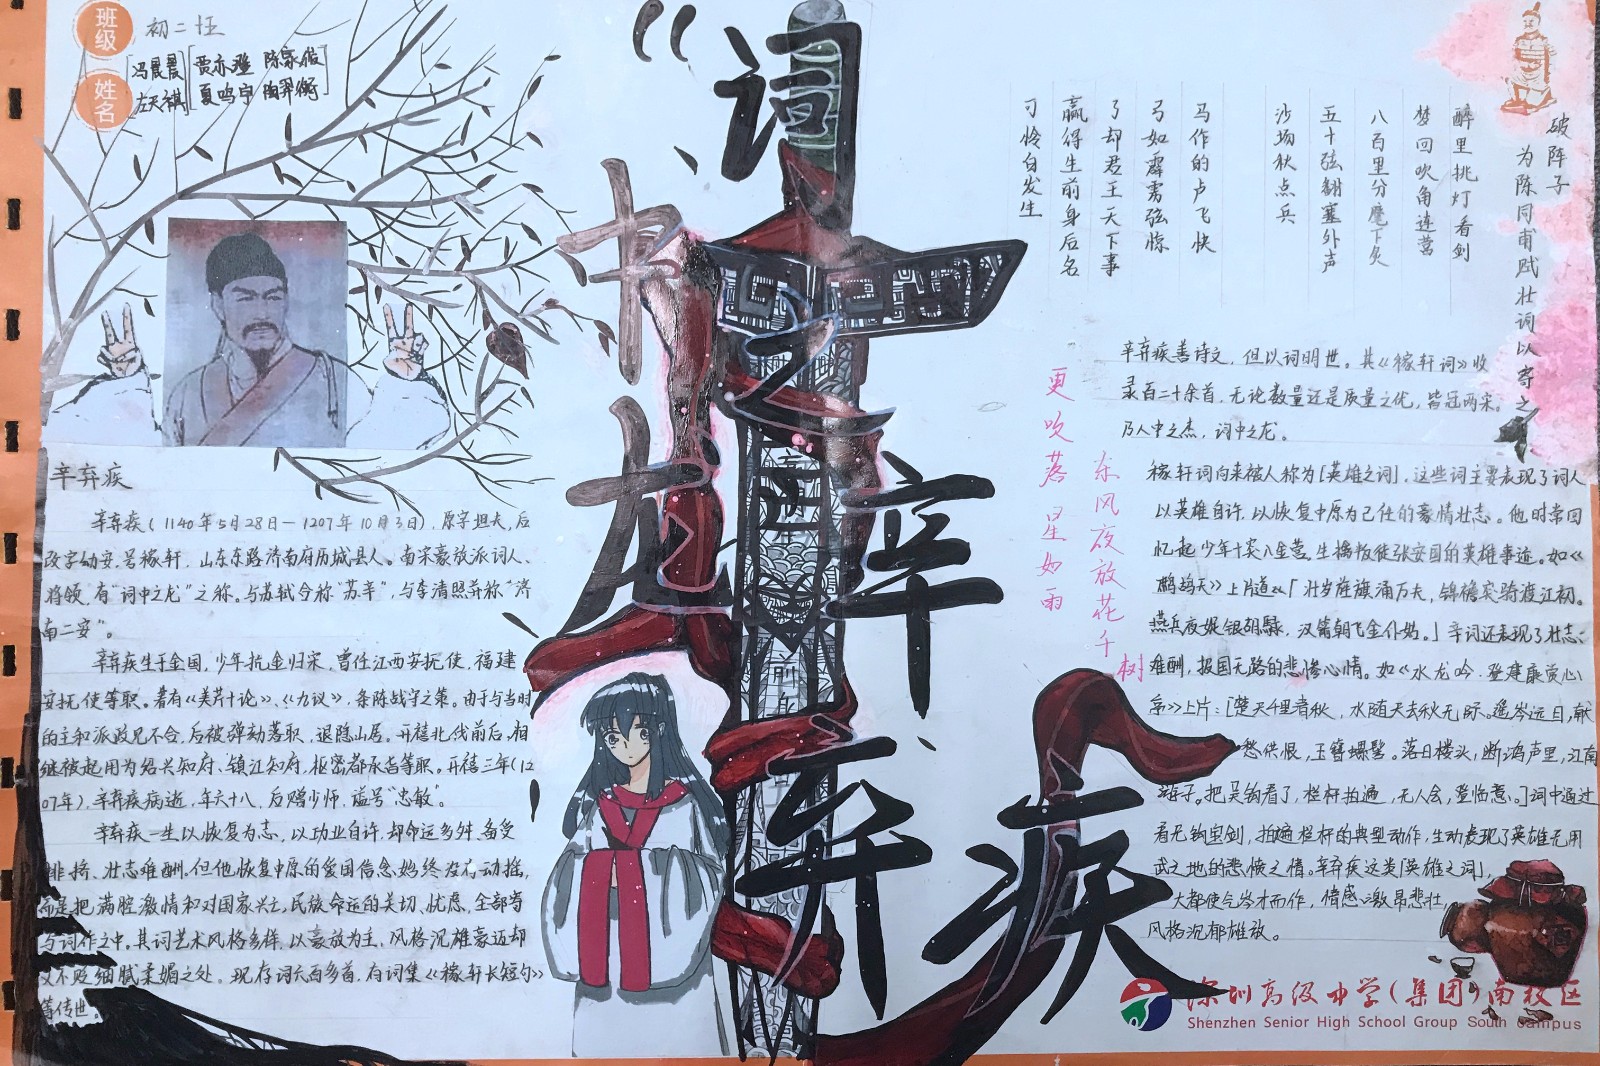 班级
初二
姓名
冯晨晨 贾亦澄 陈家俊
左天祺 夏鸣宇
词
中
之
龙
辛
弃
疾
辛弃疾
辛弃疾(1140年5月28日—1207年10月3日),原字坦夫,后
改字幼安,号稼轩,山东东路济南府历城县人。南宋豪放派词人、
将领,有"词中之龙"之称。与苏轼合称"苏辛",与李清照并称"济
南二安"。
辛弃疾生于金国,少年抗金归宋,曾任江西安抚使,福建
安抚使等职。著有《美芹十论》、《九议》,条陈战守之策。由于与当时
的主和派政见不合,后被弹劾落职,退隐山居。开禧北伐前后,相
继被起用为绍兴知府、镇江知府、枢密都承旨等职。开禧三年(12
07年),辛弃疾病逝,年六十八,后赠少师,谥号"忠敏"。
辛弃疾一生以恢复为志,以功业自许,却命运多舛、备受
排挤、壮志难酬。但他恢复中原的爱国信念始终没有动摇,
而是把满腔激情和对国家兴亡,民族命运的关切、忧虑,全部寄
与词作之中。其词艺术风格多样,以豪放为主,风格沉雄豪迈却
又不贬细腻柔媚之处。现存词六百多首,有词集《稼轩长短句》
等传世。
破阵子
为陈同甫赋壮词以寄之
醉里挑灯看剑
梦回吹角连营
八百里分麾下炙
五十弦翻塞外声
沙场秋点兵
马作的卢飞快
弓如霹雳弦惊
了却君王天下事
赢得生前身后名
可怜白发生
东风夜放花千树
更吹落星如雨
辛弃疾善诗文,但以词明世。其《稼轩词》收
录百二十余首,无论数量还是质量之优,皆冠两宋。
乃人中之杰,词中之龙。
稼轩词向来被人称为「英雄之词」,这些词主要表现了词人
以英雄自许,以恢复中原为己任的豪情壮志。他时常回
忆起少年十突八金营,生擒叛徒张安国的英雄事迹。如《
鹧鸪天》上片道:「壮岁旌旗涌万夫,锦襜突骑渡江初。
燕兵夜娖银胡䩮,汉箭朝飞金仆姑。」辛词还表现了壮志
难酬,报国无路的悲慨心情。如《水龙吟·登建康赏心
亭》上片:「楚天千里清秋,水随天去秋无际。遥岑远目,献
愁供恨,玉簪螺髻。落日楼头,断鸿声里,江南
游子。把吴钩看了,栏杆拍遍,无人会,登临意。」词中通过
看无钩宝剑,拍遍栏杆的典型动作,生动表现了英雄无用
武之地的悲慨之情。辛弃疾这类「英雄之词」,
大都使气岁才而作,情感激昂悲壮,
风格沉郁雄放。
酒
深圳高级中学(集团)南校区
Shenzhen Senior High School Group South Campus